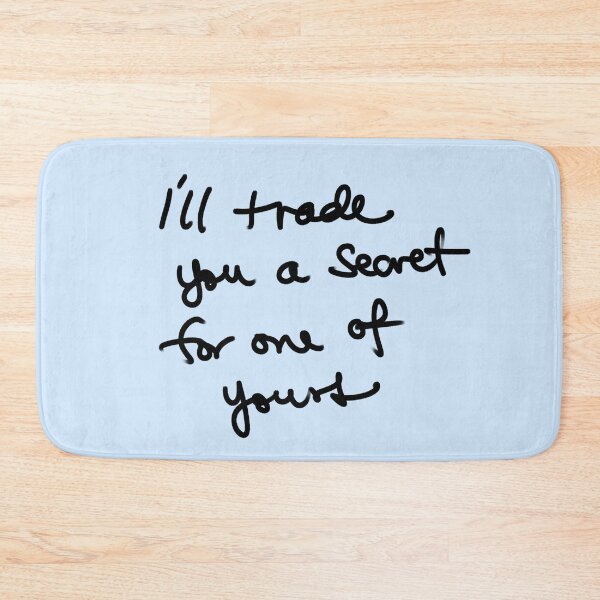 I'll trade
you a secret
for one of
yours